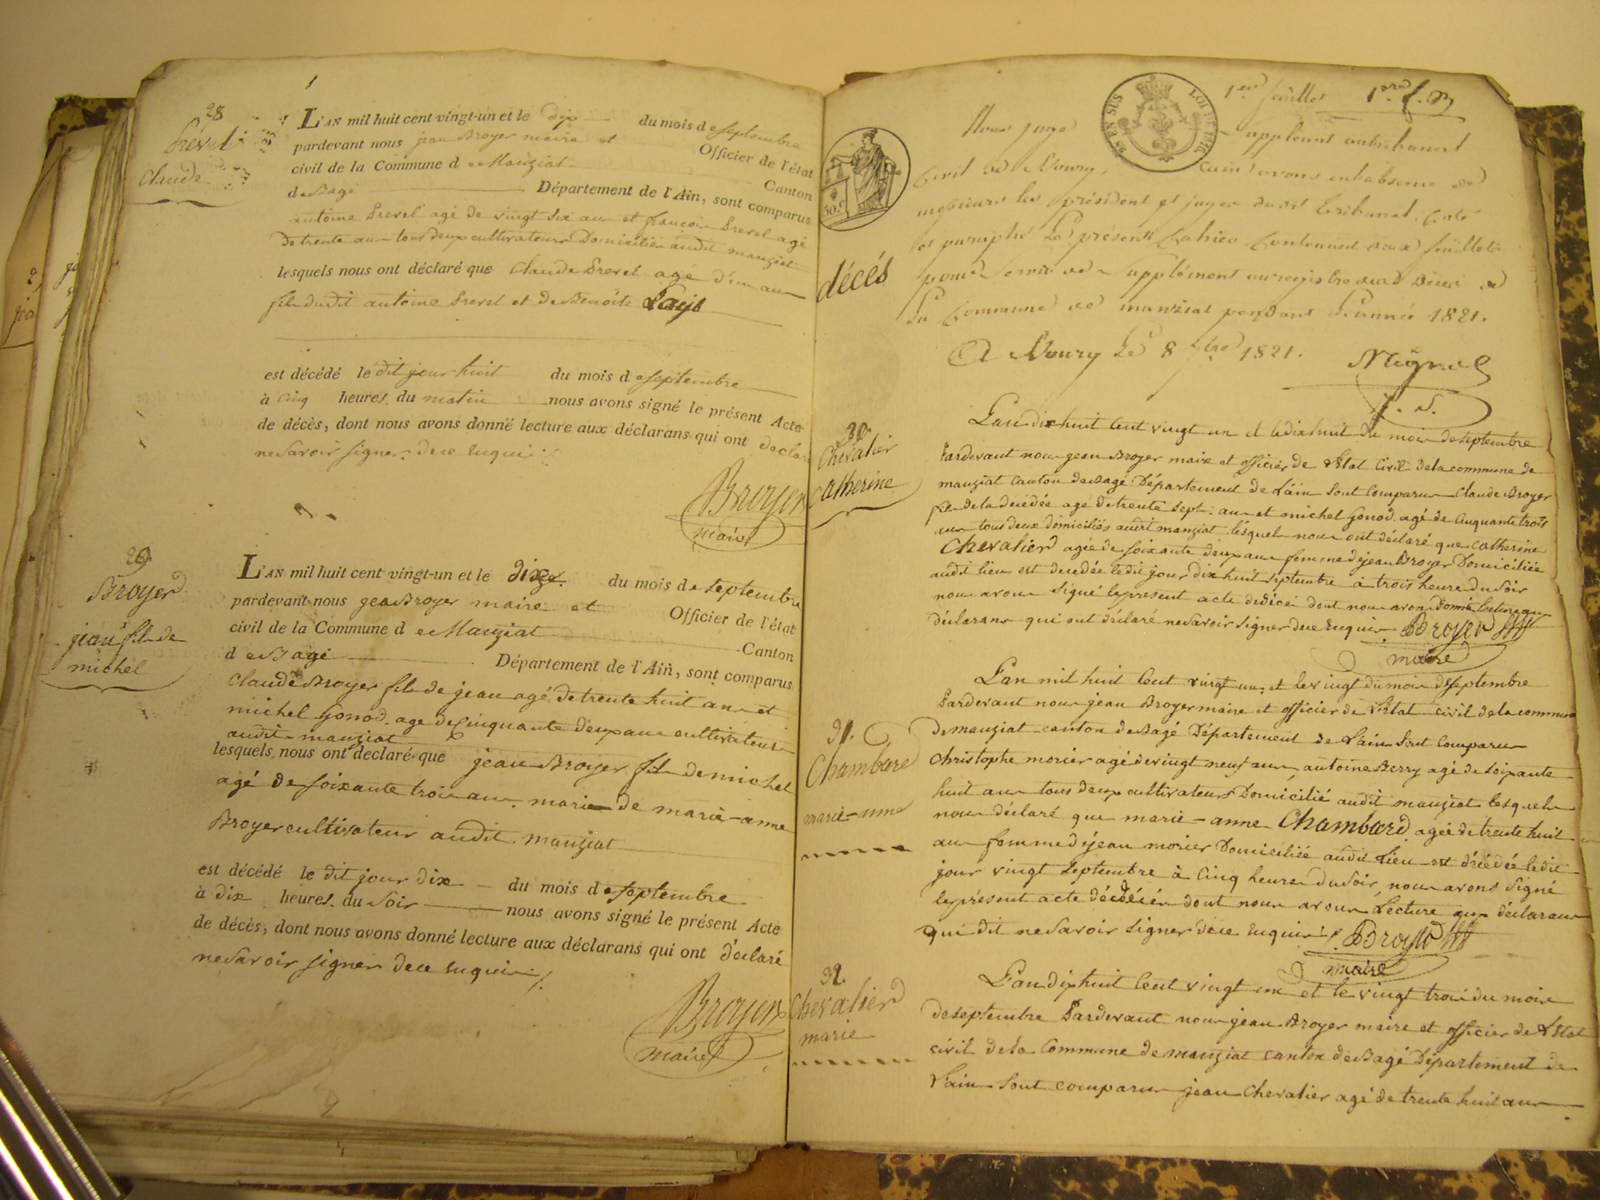 28
Prével
Claude
L'AN mil huit cent vingt-un et le dix du mois de septembre
pardevant nous jean Broyer maire et Officier de l'état
civil de la Commune d e Manziat Canton
d e Bagé Département de l'Ain, sont comparus
antoine Prevel agé de vingt six an et françois Prevel agé
de trente an tous deux cultivateurs Domiciliés audit manziat
lesquels nous ont déclaré que Claude Prevel agé d'un an
fils dudit antoine Prevel et de Benoite
est décédé le dit jour huit du mois d e septembre
à cinq heures du matin nous avons signé le présent Acte
de décès, dont nous avons donné lecture aux déclarans qui ont declaré
ne Savoir signer de ce enquis
Broyer
maire
29
Broyer
jean fils de
michel
L'AN mil huit cent vingt-un et le dix du mois d e septembre
pardevant nous jea Broyer maire et Officier de l'état
civil de la Commune d e Manziat Canton
d e Bagé Département de l'Ain, sont comparus
Claude Broyer fils de jean agé de trente huit an et
michel Gonod agé de Cinquante deux an cultivateur
audit manziat
lesquels nous ont declaré que jean Broyer fils de michel
agé de soixante trois an marie de marie-anne
Broyer cultivateur audit manziat
est décédé le dit jour dix du mois d e septembre
à dix heures du soir nous avons signé le présent Acte
de décès, dont nous avons donné lecture aux déclarans qui ont déclaré
ne Savoir signer de ce enquis
Broyer
maire
1er feuillet 1er f.
EN SUS LOI DE 1816
50 c.
Nous juge suppléant au tribunal
Civil de Bourg, avons en l'absence de
messieurs les président et juges dudit tribunal, Coté
et paraphé le présent Cahier Contenant deux feuillets
pour servir de supplément au registre des décès de
décés
La Commune de manziat pendant l'année 1821.
A Bourg Le 8 1821.
30
Chevalier
Catherine
L'an dix huit Cent vingt un et le dix huit du mois de septembre
Pardevant nous jean Broyer maire et officier de l'Etat Civil de la commune de
manziat Canton de Bagé Département de L'ain Sont Comparus Claude Broyer
fils de la décédée agé de trente Sept an et michel Gonod agé de Cinquante trois
an tous deux domiciliés audit manziat lesquels nous ont déclaré que Catherine
Chevalier agée de soixante deux an femme de jean Broyer Domiciliée
audit lieu est decedée ledit jour dix huit septembre à trois heure du soir
nous avons signé le present acte de décé dont nous avons donné lecture aux
déclarans qui ont déclaré ne Savoir signer de ce enquis Broyer
maire
31.
Chambard
marie-anne
L'an mil huit Cent vingt un et le vingt du mois de septembre
Pardevant nous jean Broyer maire et officier de l'Etat civil de la commune
de manziat canton de Bagé Département de L'ain Sont Comparus
Christophe morier agé de vingt neuf an, antoine Berry agé de soixante
huit an tous deux cultivateurs Domicilié audit manziat lesquels
nous déclaré que marie-anne Chambard agée de trente huit
an femme de jean morier Domiciliée audit Lieu est décédée ledit
jour vingt septembre à Cinq heure du soir, nous avons signé
le présent acte de décé dont nous avons Lecture aux déclarans
qui dit ne Savoir signer de ce enquis Broyer
maire
32
Chevalier
marie
L'an dix huit Cent vingt un et le vingt trois du mois
de septembre Pardevant nous jean Broyer maire et officier de l'Etat
civil de la Commune de manziat canton de Bagé Département de
L'ain Sont comparus jean Chevalier agé de trente huit an